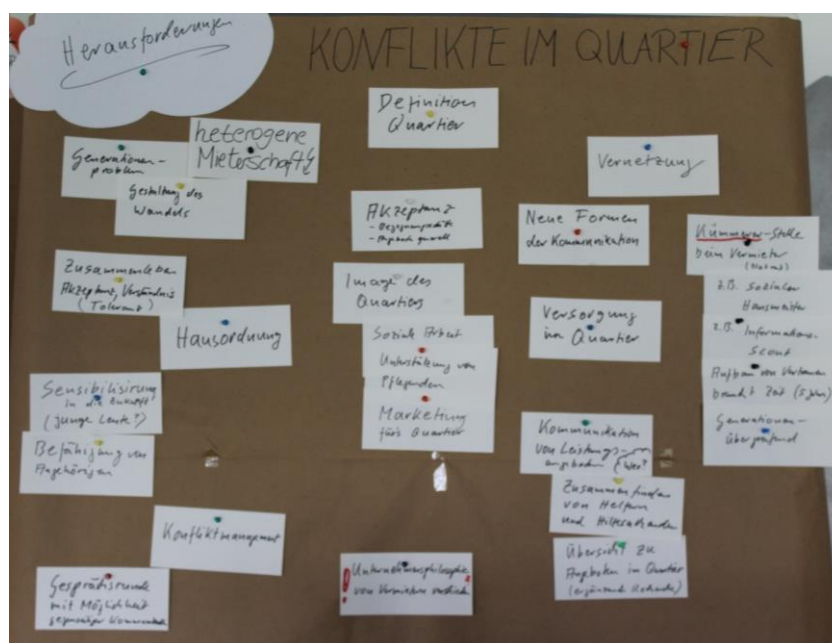 Herausforderungen
KONFLIKTE IM QUARTIER
Generationen-
problem
heterogene
Mieterschaft
Gestaltung des
Wandels
Zusammenleben
Akzeptanz, Verständnis
(Toleranz)
Hausordnung
Sensibilisirung
in die Zukunft
(junge Leute?)
Befähigung von
Angehörigen
Konfliktmanagement
Gesprächsrunde
mit Möglichkeit
Definition
Quartier
Akzeptanz
Image des
Quartiers
Soziale Arbeit
Unterstützung von
Pflegenden
Marketing
fürs Quartier
! Unternehmensphilosophie
von Vermietern
Vernetzung
Neue Formen
der Kommunikation
Versorgung
im Quartier
Kommunikation
von Leistungs-
angeboten (Wer?
Zusammenfinden
von Helfern
und Hilfesuchenden
Übersicht zu
Angeboten im Quartier
Kümmerer-Stelle
beim Vermieter
z.B. Sozialer
Hausmeister
z.B. Informations-
Scout
Aufbau von Vertrauen
braucht Zeit (5 Jahre)
Generationen-